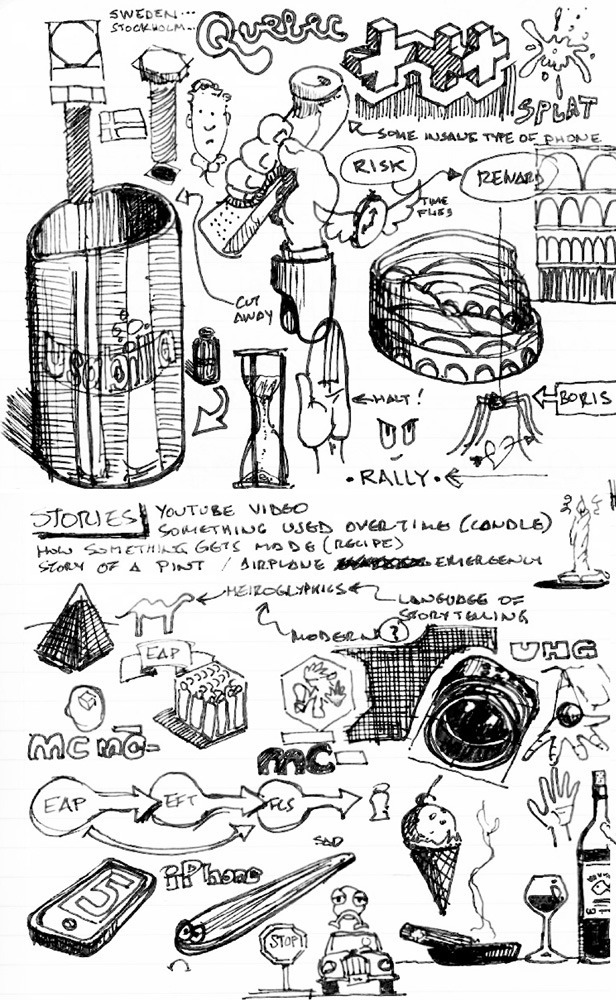 SWEDEN...
STOCKHOLM...
Quebec
SPLAT
SOME INSANE TYPE OF PHONE
RISK
REWARD
TIME
FLIES
CUT
AWAY
HALT!
BORIS
•RALLY•
STORIES
YOUTUBE VIDEO
SOMETHING USED OVER TIME (CANDLE)
HOW SOMETHING GETS MADE (RECIPE)
STORY OF A PINT / AIRPLANE EMERGENCY
HEIROGLYPHICS
LANGUAGE OF
STORYTELLING
MODERN ?
UHG
EAP
MC MC-
MC-
EAP
EFT
FCS
SAD
iPhone
5
STOP!!